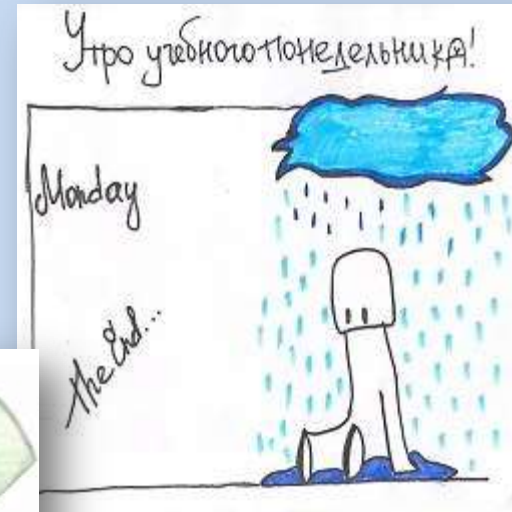 Утро учебного понедельника!
Monday
The End...